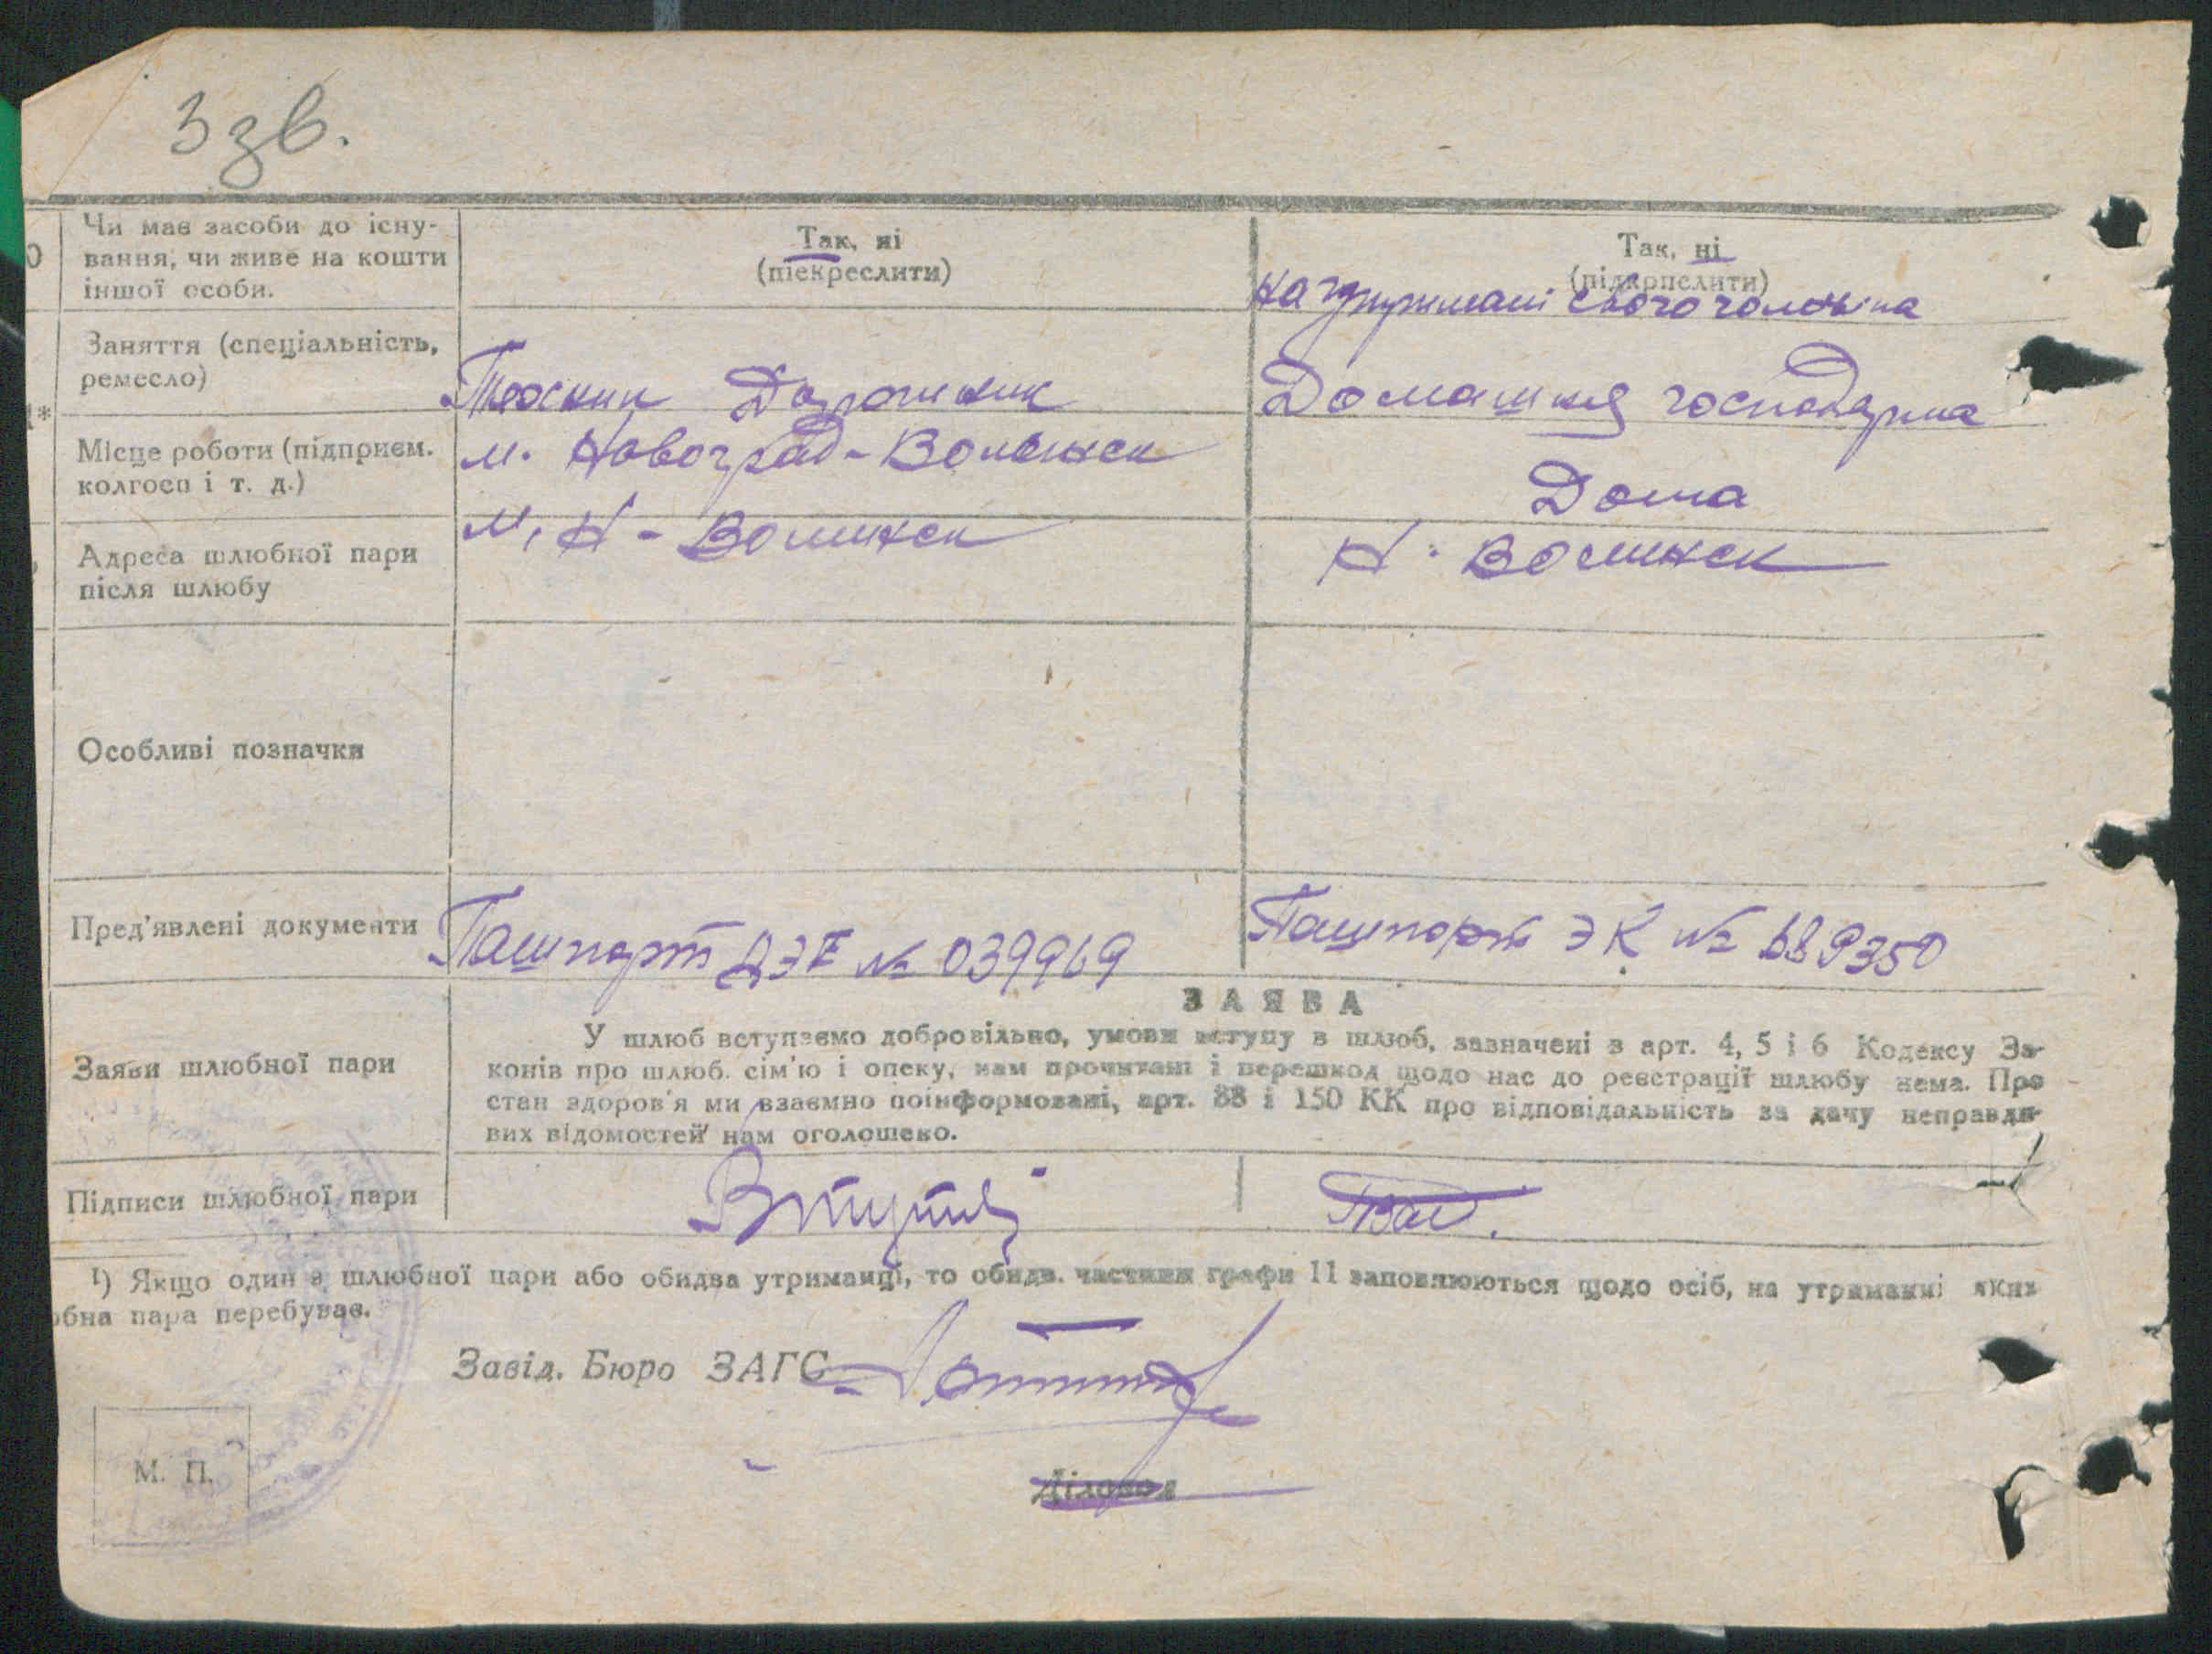 3 зв.
Чи має засоби до існу-
вання, чи живе на кошти
іншої особи.
Так, ні
(піекреслити)
Так, ні
(підкрпслити)
на утримані свого чоловіка
Заняття (спеціальність,
ремесло)
Дорожник
Домашня господарка
Місце роботи (підприєм.
колгосп і т. д.)
м. Новоград-Волинськ
Дома
Адреса шлюбної пари
після шлюбу
м. Н-Волинськ
Н. Волинск
Особливі позначки
Пред'явлені документи
Пашпорт № 039969
Пашпорт ЭК №
ЗАЯВА
Заяви шлюбної пари
У шлюб вступаємо добровільно, умови вступу в шлюб, зазначені в арт. 4, 5 і 6 Кодексу За-
конів про шлюб. сім'ю і опеку, нам прочитані і перешкод щодо нас до реєстрації шлюбу нема. Про
стан здоров'я ми взаємно поінформовані, арт. 88 і 150 КК про відповідальність за дачу неправди-
вих відомостей нам оголошено.
Підписи шлюбної пари
¹) Якщо один з шлюбної пари або обидва утриманці, то обидв. частини графи 11 заповнюються щодо осіб, на утриманні яких
обна пара перебуває.
Завід. Бюро ЗАГС
М. П.
Діловод